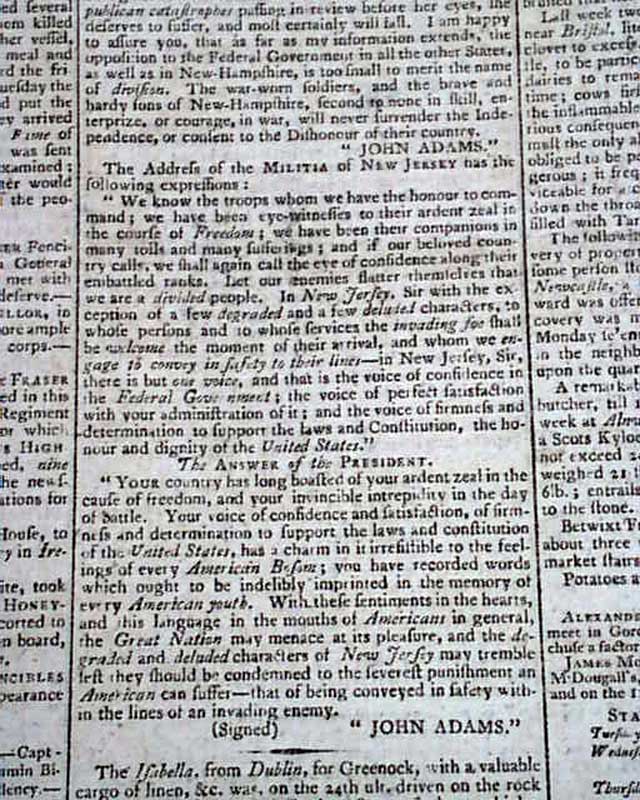 ed several
om killed
her vessel,
meal and
rd the fri
uesday the
d put the
ey arrived
Fame of
was sent
xamined :
ter would
the peo-
Fenci-
General
met with
deserve.—
LLOR, in
ore ample
corps.—
FRASER
ed in this
Regiment
or which
's HIGH
ed, nine
he news-
ations for
House, to
ey in Ire-
ite, took
HONEY-
corted to
n board,
e.
NCIBLES
pearance
—Capt -
umin Bi-
llency.—
publican catastrophes passing in review before her eyes, she
deserves to suffer, and most certainly will fall. I am happy
to assure you, that as far as my information extends, the
opposition to the Federal Government in all the other States,
as well as in New-Hampshire, is too small to merit the name
of division. The war-worn soldiers, and the brave and
hardy sons of New-Hampshire, second to none in skill, en-
terprize, or courage, in war, will never surrender the Inde-
pendence, or consent to the Dishonour of their country.
" JOHN ADAMS."
The Address of the MILITIA of NEW JERSEY has the
following expressions :
" We know the troops whom we have the honour to com-
mand ; we have been eye-witnesses to their ardent zeal in
the course of Freedom ; we have been their companions in
many toils and many sufferings ; and if our beloved coun-
try calls, we shall again call the eye of confidence along their
embattled ranks. Let our enemies flatter themselves that
we are a divided people. In New Jersey, Sir with the ex-
ception of a few degraded and a few deluded characters, to
whose persons and to whose services the invading foe shall
be welcome the moment of their arrival, and whom we en-
gage to convey in safety to their lines—in New Jersey, Sir,
there is but one voice, and that is the voice of confidence in
the Federal Government ; the voice of perfect satisfaction
with your administration of it ; and the voice of firmness and
determination to support the laws and Constitution, the ho-
nour and dignity of the United States."
The ANSWER of the PRESIDENT.
" YOUR country has long boasted of your ardent zeal in the
cause of freedom, and your invincible intrepidity in the day
of battle. Your voice of confidence and satisfaction, of firm-
ness and determination to support the laws and constitution
of the United States, has a charm in it irresistible to the feel-
ings of every American Bosom ; you have recorded words
which ought to be indelibly imprinted in the memory of
every American youth. With these sentiments in the hearts,
and this language in the mouths of Americans in general,
the Great Nation may menace at its pleasure, and the de-
graded and deluded characters of New Jersey may tremble
lest they should be condemned to the severest punishment an
American can suffer—that of being conveyed in safety with-
in the lines of an invading enemy.
(Signed) " JOHN ADAMS."
The Isabella, from Dublin, for Greenock, with a valuable
cargo of linen, &c. was, on the 24th ult. driven on the rock
Last week tw
near Bristol,
clover to excess
tle, to be partic
dairies to rem
time ; cows
the inflammabl
rious consequen
mast the only al
obliged to be p
gerous ; it freq
viceable for a
down the throa
filled with Tar
The followin
very of proper
some person
Newcastle, a
ward was offe
covery was m
Monday se'en
in the neighb
upon the quar
A remarkab
butcher, till
week at
a Scots Kylo
not exceed 2
weighed 21
6lb. ; entrails
to the stone.
Betwixt F
about three
market stairs
Potatoes a
ALEXANDE
meet in Gor
chuse a factor
JAMES M
M'Dougall's,
and on the
STA
Wednes
Thurs